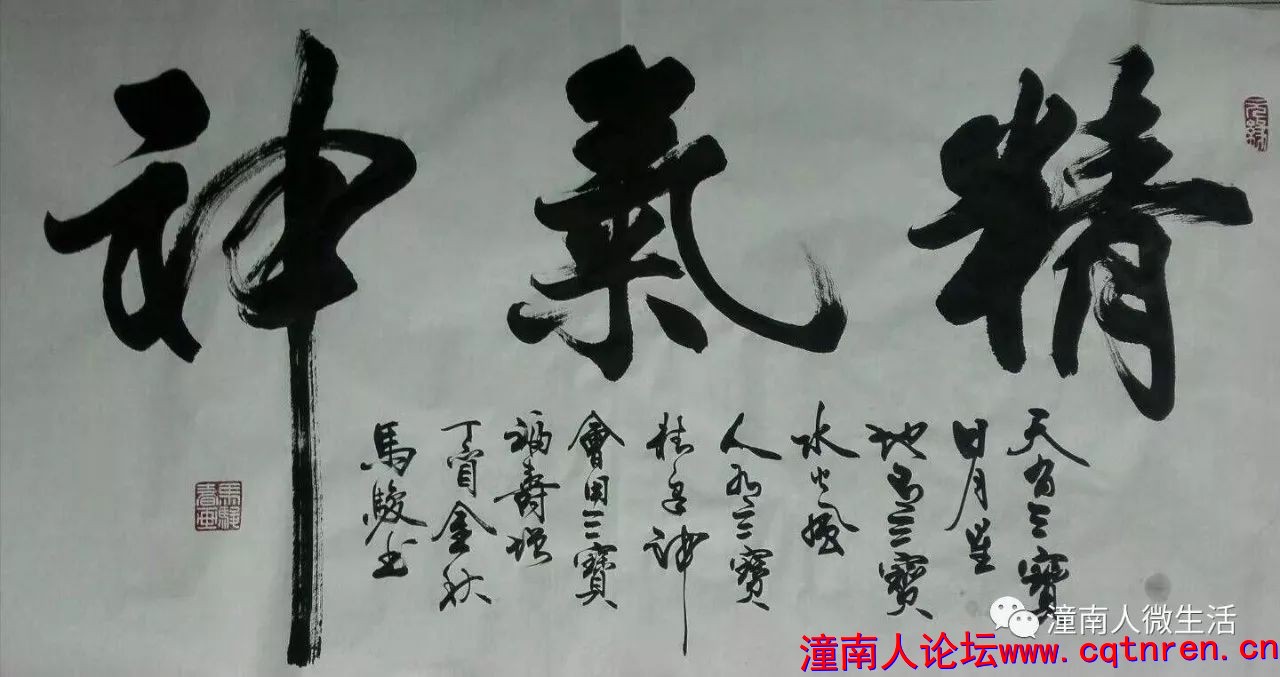 精氣神
天有三寶
日月星
地有三寶
水火風
人有三寶
精氣神
會用三寶
福壽增
丁酉金秋
馬駿書
馬駿書畫
潼南人微生活
潼南人论坛www.cqtnren.cn